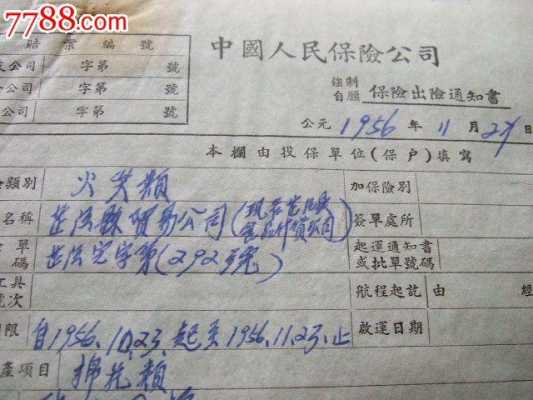 7788.com
賠案編號
公司 字第 號
公司 字第 號
公司 字第 號
中國人民保險公司
強制
自願
保險出險通知書
公元 1956 年 11 月 27 日
本欄由投保單位(保户)填寫
類別 火失類 加保險別
名稱 貿易公司 簽單處所
單
碼 字第(292號) 起運通知書
或批單號碼
工具
號次 航程起訖 由 經
限 自1956.10.23.起至1956.11.23.止 啟運日期
產項目 棉花類